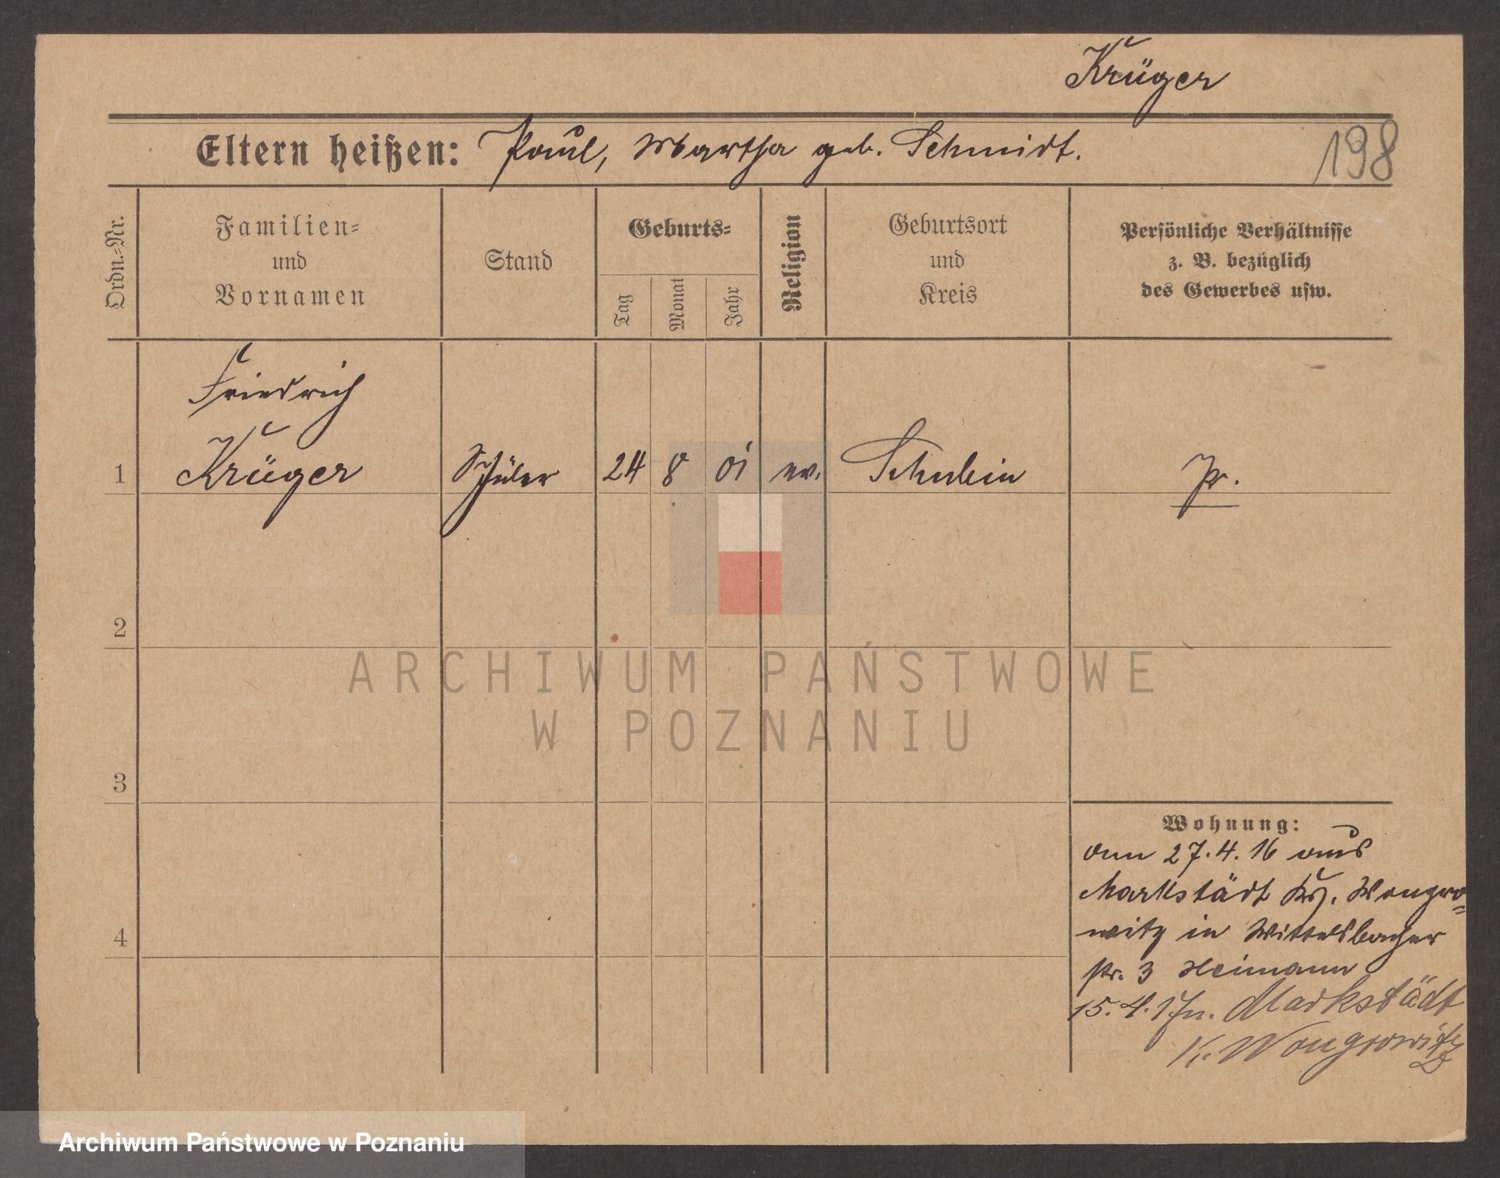 Krüger
Eltern heißen: Paul, Martha geb. Schmidt.
198
Ordn.-Nr.
Familien-
und
Vornamen
Stand
Geburts-
Tag
Monat
Jahr
Religion
Geburtsort
und
Kreis
Persönliche Verhältnisse
z. B. bezüglich
des Gewerbes usw.
Friedrich
1 Krüger Schüler 24 8 01 ev. Schubin Pr.
2
ARCHIWUM PAŃSTWOWE
W POZNANIU
3
Wohnung:
am 27.4.16 aus
Markstädt Krs. Wongro-
witz in Wittelsbacher
str. 3 Heimann
15.4.17 n. Markstädt
K. Wongrowitz
4
Archiwum Państwowe w Poznaniu